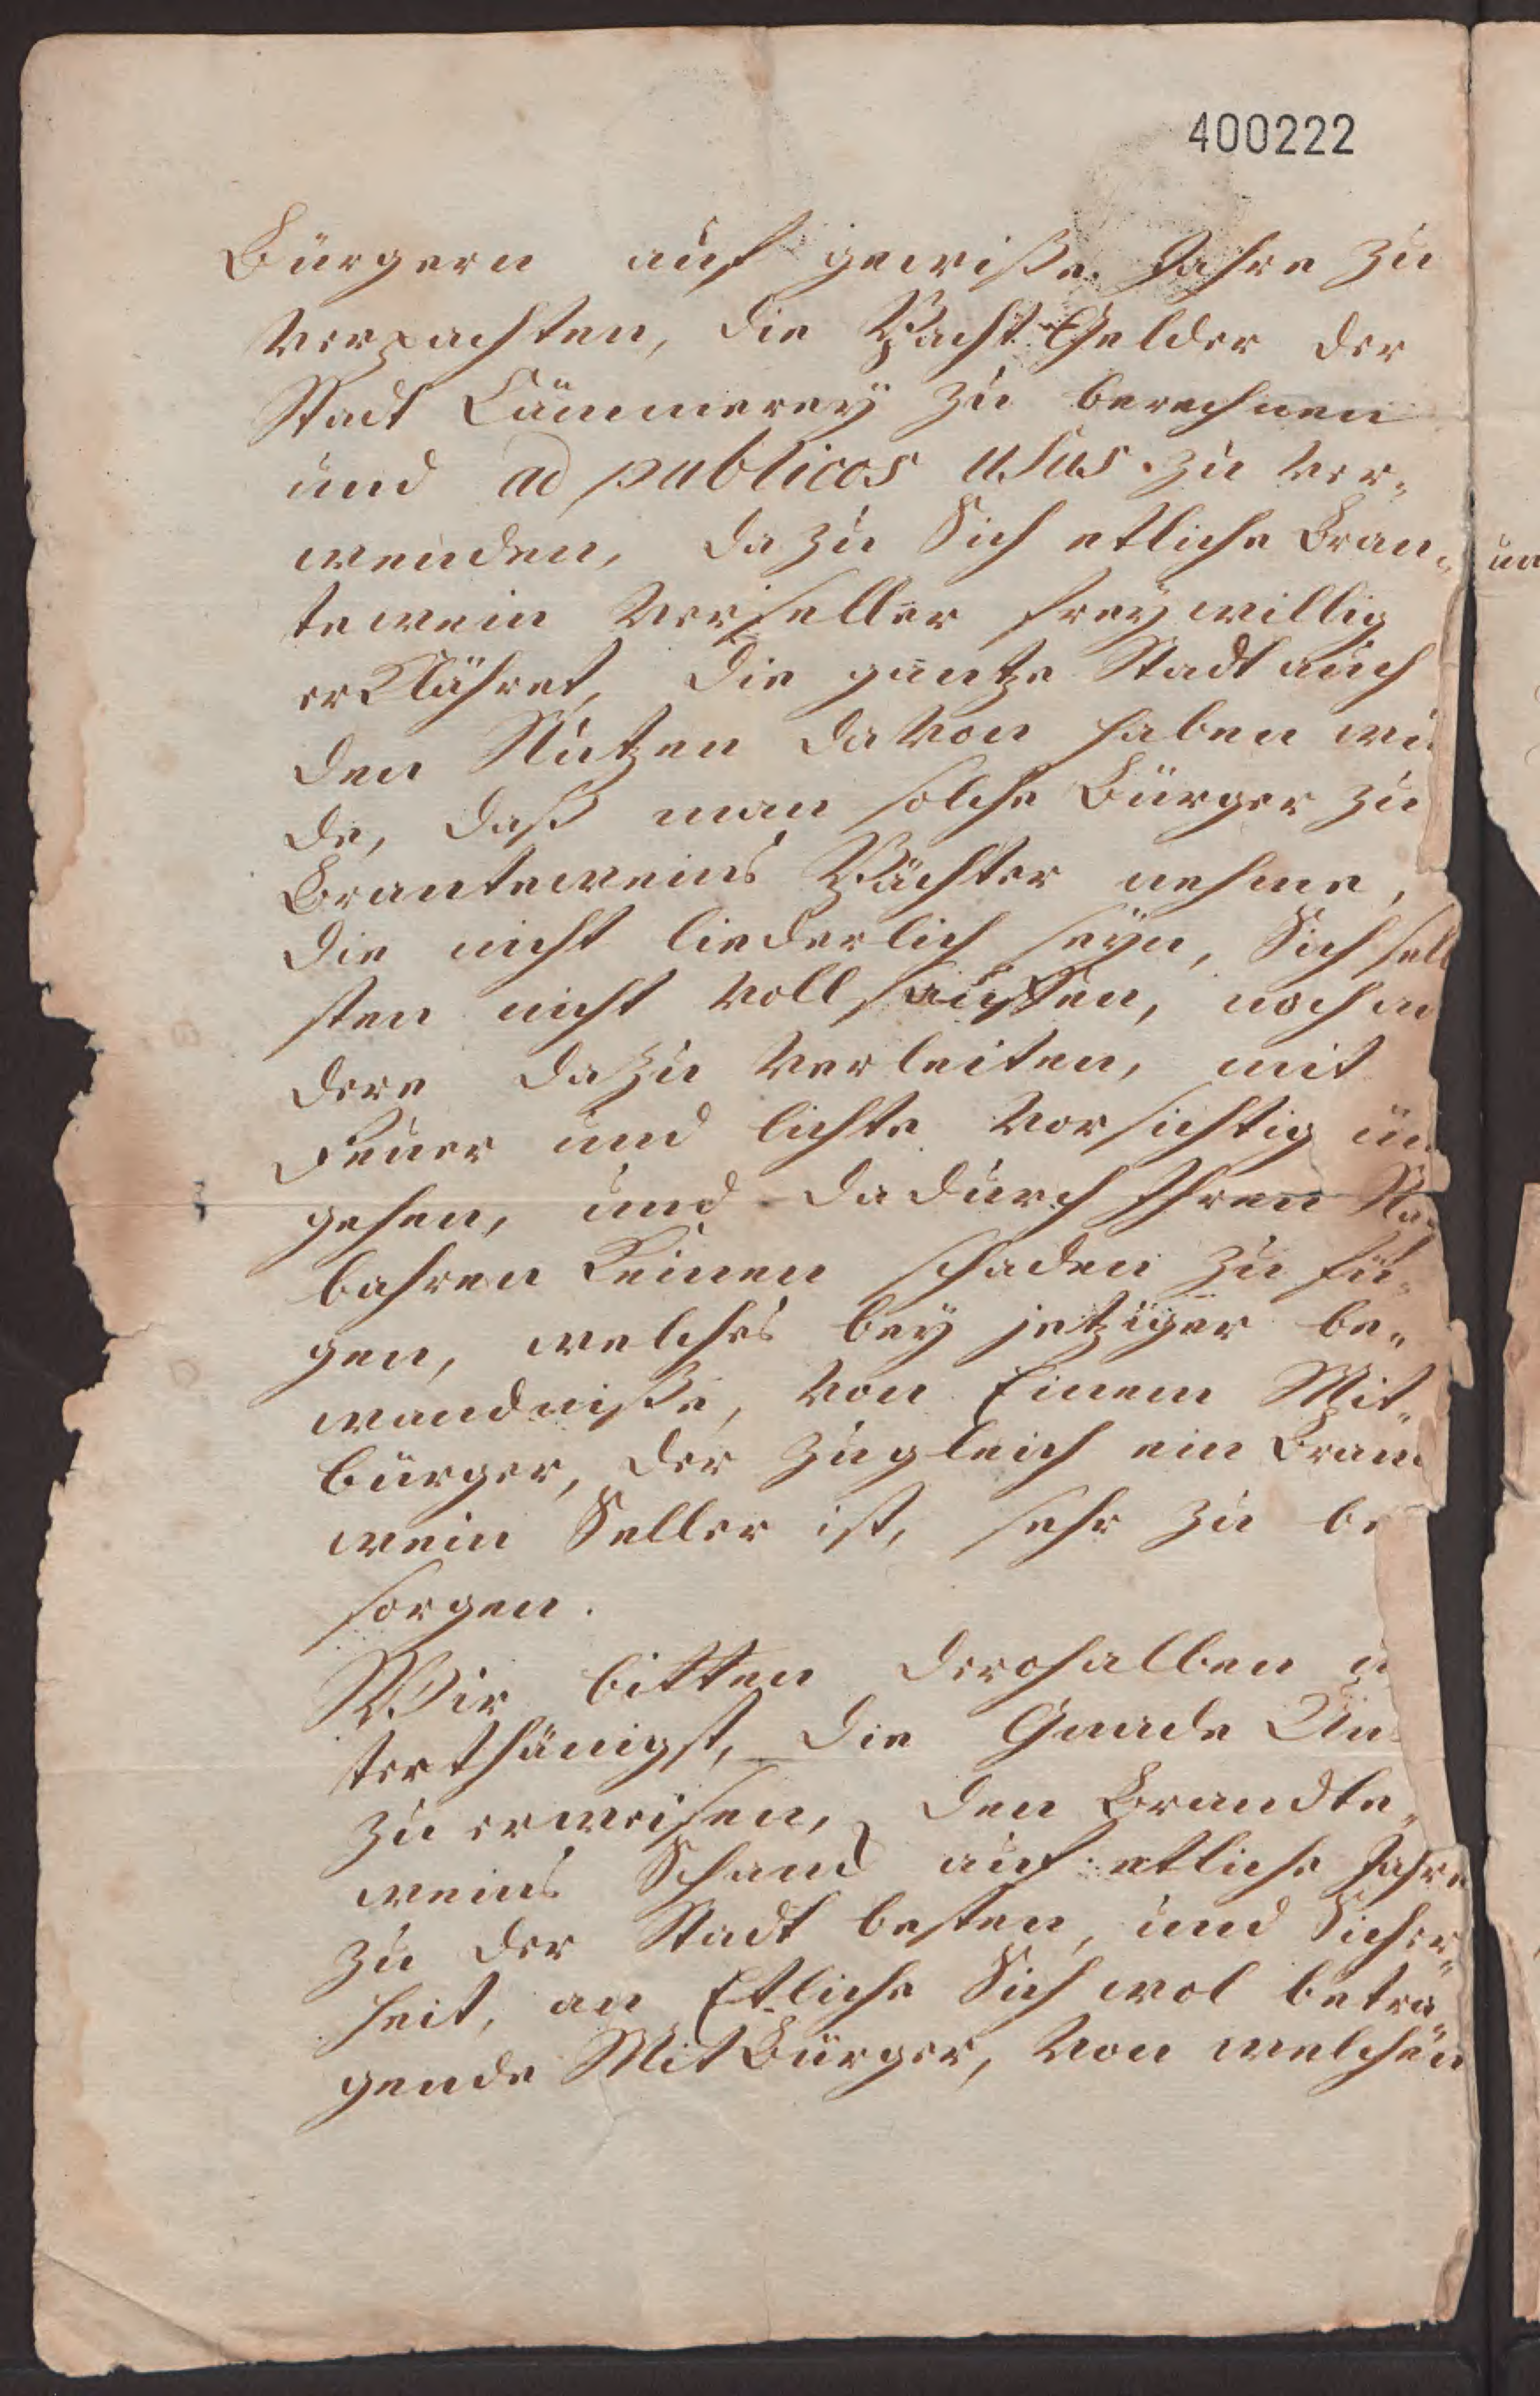 400222
Bürgern auf gewiße Jahre zu
verpachten, die Pacht Gelder der
Stadt Cämmerey zu berechnen
und ad publicos usus zu ver-
wenden, dazu Sich etliche Bran-
tewein Verseller freywillig
erklähret, die gantze Stadt auch
den Nutzen davon haben wü
de, daß man solche Bürger zu
Branteweins Pächter nehme,
die nicht liederlich seyn, Sich selb
sten nicht voll sauffen, noch an
dere dazu verleiten, mit
Feuer und lichte vorsichtig üm
gehen, und dadurch Ihren Na
bahren keinen schaden zu fü-
gen, welches bey jetziger be-
wandniße, von Einem Mit-
bürger, der zugleich ein Bran
wein Seller ist, sehr zu be
sorgen.
Wir bitten derohalben u
terthänigst, die Gnade Un
zu erweisen, den Brandte-
weins Schanck auf etliche Jahre
zu der Stadt besten, und Sicher-
heit, an Etliche Sich wol beträ-
gende MitBürger, von welchen
un